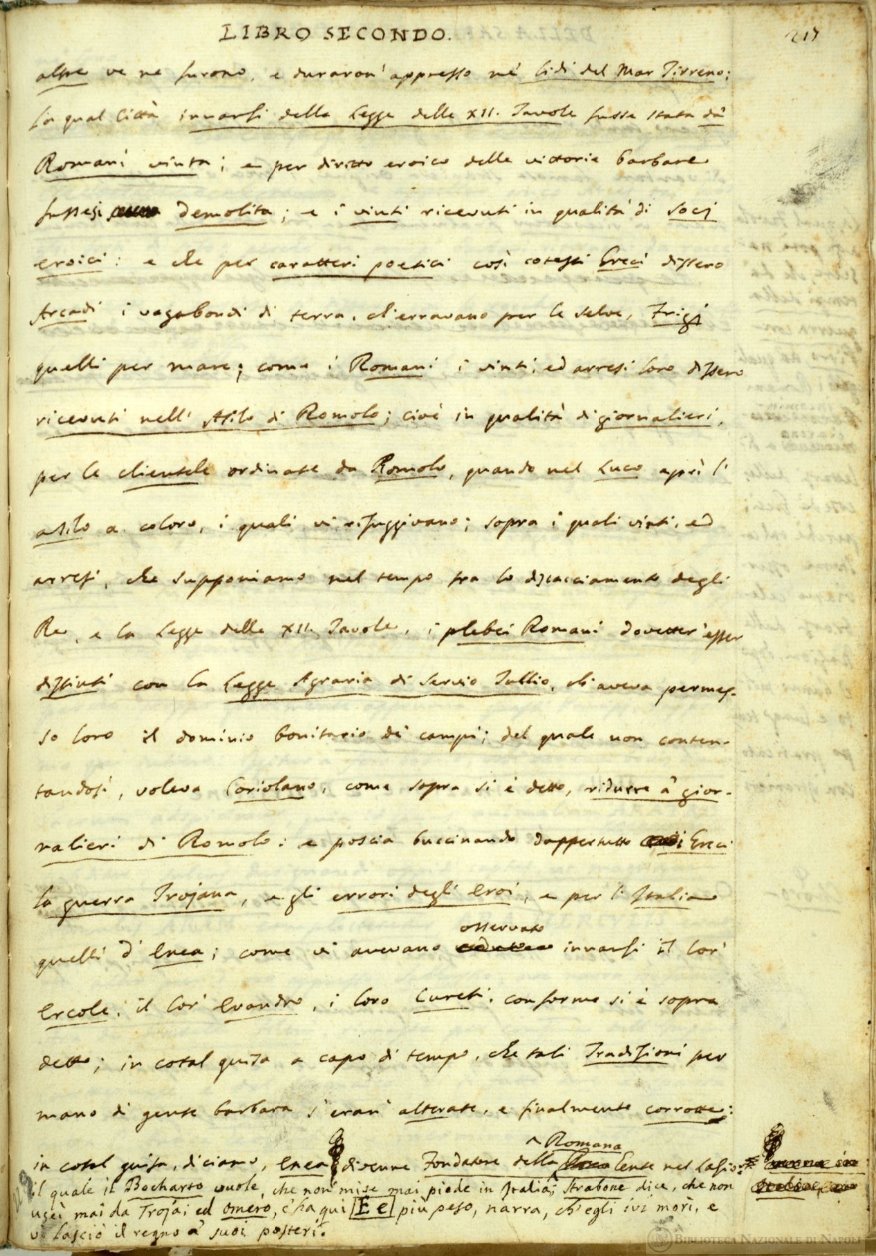 LIBRO SECONDO. 217
altre ve ne furono, e duraron' appresso ne' lidi del Mar Tirreno;
la qual Città innanzi della Legge delle XII. Tavole fusse stata da'
Romani vinta; e per diritto eroico delle vittorie barbare
fussesi demolita; e i vinti ricevuti in qualità di Socj
eroici: e che per caratteri poetici così cotesti Greci dissero
Arcadi i vagabondi di terra, ch'erravano per le selve, Frigj
quelli per mare; come i Romani i vinti, ed arresi loro dissero
ricevuti nell' Asilo di Romolo; cioè in qualità di giornalieri,
per le clientele ordinate da Romolo, quando nel Luco aprì l'
asilo a coloro, i quali vi rifuggivano; sopra i quali vinti, ed
arresi, che supponiamo nel tempo tra lo discacciamento degli
Re, e la Legge delle XII. Tavole, i plebei Romani dovetter' esser
distinti con la Legge Agraria di Servio Tullio, ch'aveva permes-
so loro il dominio bonitario de' campi; del quale non conten-
tandosi, voleva Coriolano, come sopra si è detto, ridurre a' gior-
nalieri di Romolo: e poscia buccinando dappertutto i Greci
la guerra Trojana, e gli errori degli Eroi, e per l'Italia
quelli d'Enea; come vi avevano osservato innanzi il lor'
Ercole, il lor' Evandro, i loro Cureti, conforme si è sopra
detto; in cotal guisa a capo di tempo, che tali Tradizioni per
mano di gente barbara s'eran' alterate, e finalmente corrotte;
in cotal guisa, diciamo, Enea divenne Fondatore della Romana Gente nel Lazio:
il quale il Bocharto vuole, che non mise mai piede in Italia; Strabone dice, che non
uscì mai da Troja; ed Omero, c'ha qui Ee più peso, narra, ch'egli ivi morì, e
vi lasciò il regno a' suoi posteri.
BIBLIOTECA NAZIONALE DI NAPOLI